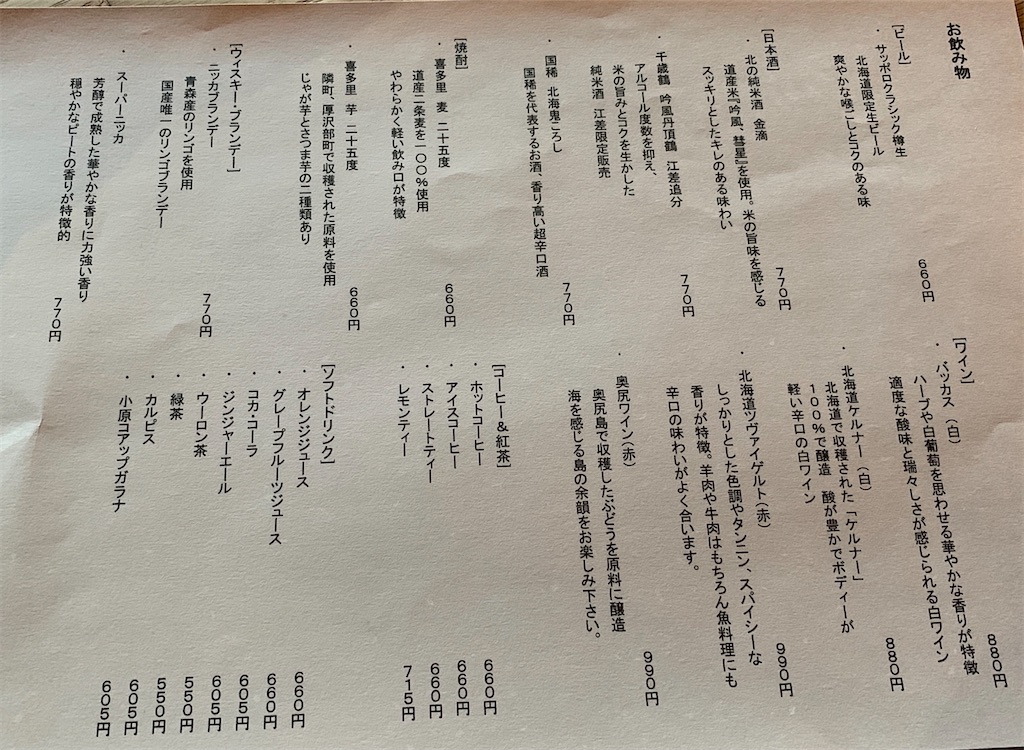 お飲み物
[ビール]
・サッポロクラシック樽生
北海道限定生ビール
爽やかな喉ごしとコクのある味
660円
[日本酒]
・北の純米酒 金滴
道産米『吟風、彗星』を使用。米の旨味を感じる
スッキリとしたキレのある味わい
770円
・千歳鶴 吟風丹頂鶴 江差追分
アルコール度数を抑え、
米の旨みとコクを生かした
純米酒 江差限定販売
770円
・国稀 北海鬼ころし
国稀を代表するお酒、香り高い超辛口酒
770円
[焼酎]
・喜多里 麦 二十五度
道産二条麦を一〇〇%使用
やわらかく軽い飲み口が特徴
660円
・喜多里 芋 二十五度
隣町、厚沢部町で収穫された原料を使用
じゃが芋とさつま芋の二種類あり
660円
[ウィスキー・ブランデー]
・ニッカブランデー
青森産のリンゴを使用
国産唯一のリンゴブランデー
770円
・スーパーニッカ
芳醇で成熟した華やかな香りに力強い香り
穏やかなピートの香りが特徴的
770円
[ワイン]
・バッカス(白)
ハーブや白葡萄を思わせる華やかな香りが特徴
適度な酸味と瑞々しさが感じられる白ワイン
880円
・北海道ケルナー(白)
北海道で収穫された「ケルナー」
100%で醸造 酸が豊かでボディーが
軽い辛口の白ワイン
880円
・北海道ツヴァイゲルト(赤)
しっかりとした色調やタンニン、スパイシーな
香りが特徴。羊肉や牛肉はもちろん魚料理にも
辛口の味わいがよく合います。
990円
・奥尻ワイン(赤)
奥尻島で収穫したぶどうを原料に醸造
海を感じる島の余韻をお楽しみ下さい。
990円
[コーヒー&紅茶]
・ホットコーヒー 660円
・アイスコーヒー 660円
・ストレートティー 660円
・レモンティー 715円
[ソフトドリンク]
・オレンジジュース 660円
・グレープフルーツジュース 660円
・コカ・コーラ 605円
・ジンジャーエール 605円
・ウーロン茶 550円
・緑茶 550円
・カルピス 605円
・小原コアップガラナ 605円